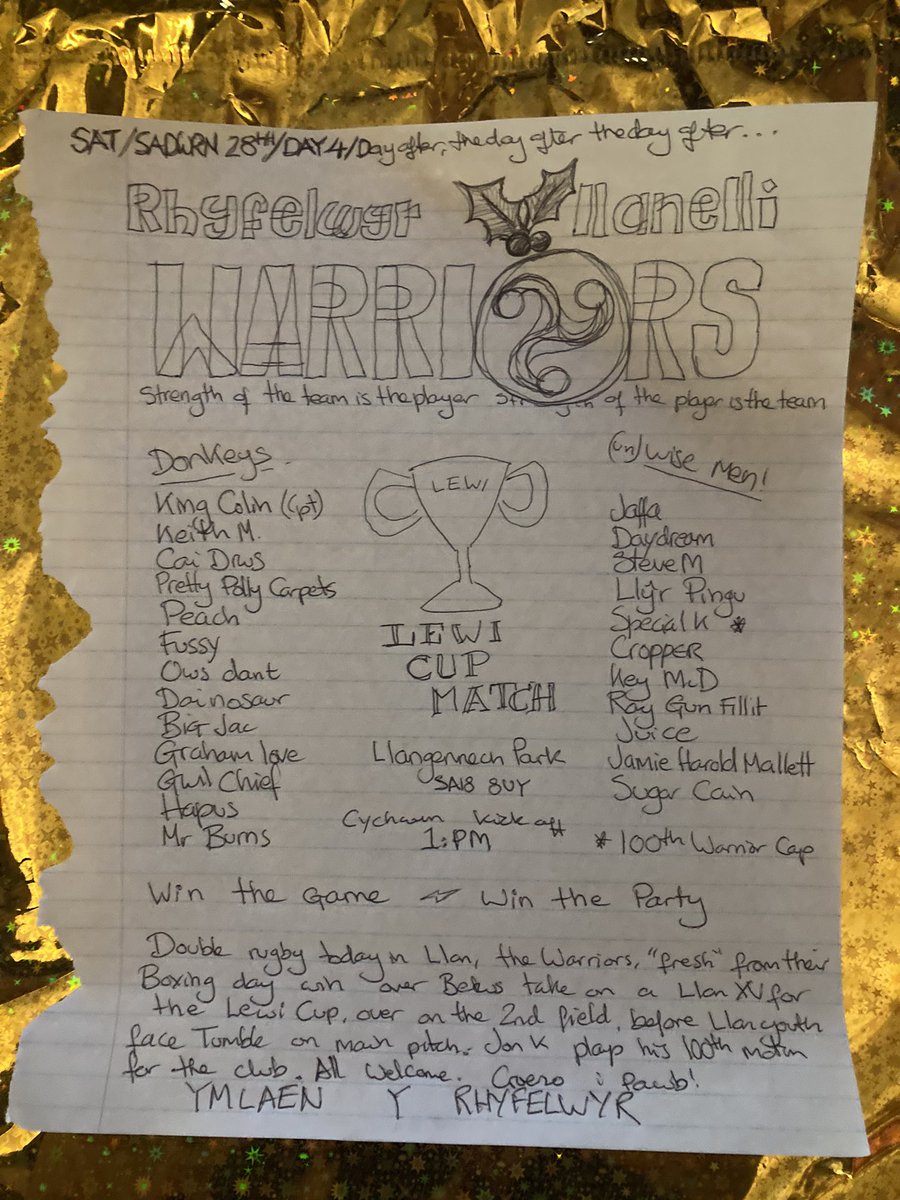 SAT/SADWRN 28TH/DAY 4/Day after, the day after the day after...
Rhyfelwyr llanelli
WARRIORS
Strength of the team is the player Strength of the player is the team
Donkeys
King Colin (cpt)
Keith M.
Cai Drws
Pretty Polly Carpets
Peach
Fussy
Ows dant
Dainosaur
Big Jac
Graham love
Gwil Chief
Hapus
Mr Burns
LEWI
LEWI
CUP
MATCH
Llangennech Park
SA18 8UY
Cychwyn kick off
1:PM
(un) wise Men!
Jaffa
Daydream
Steve M
Llŷr Pingu
Special K *
Cropper
Key McD
Ray Gun Fillit
Juice
Jamie Harold Mallett
Sugar Cain
* 100th Warrior Cap
Win the Game Win the Party
Double rugby today in Llan, the Warriors, "fresh" from their
Boxing day win over Bekws take on a Llan XV for
the Lewi Cup, over on the 2nd field, before Llan youth
face Tumble on main pitch. Jon K plays his 100th match
for the club. All Welcome. Croeso i pawb!
YMLAEN Y RHYFELWYR